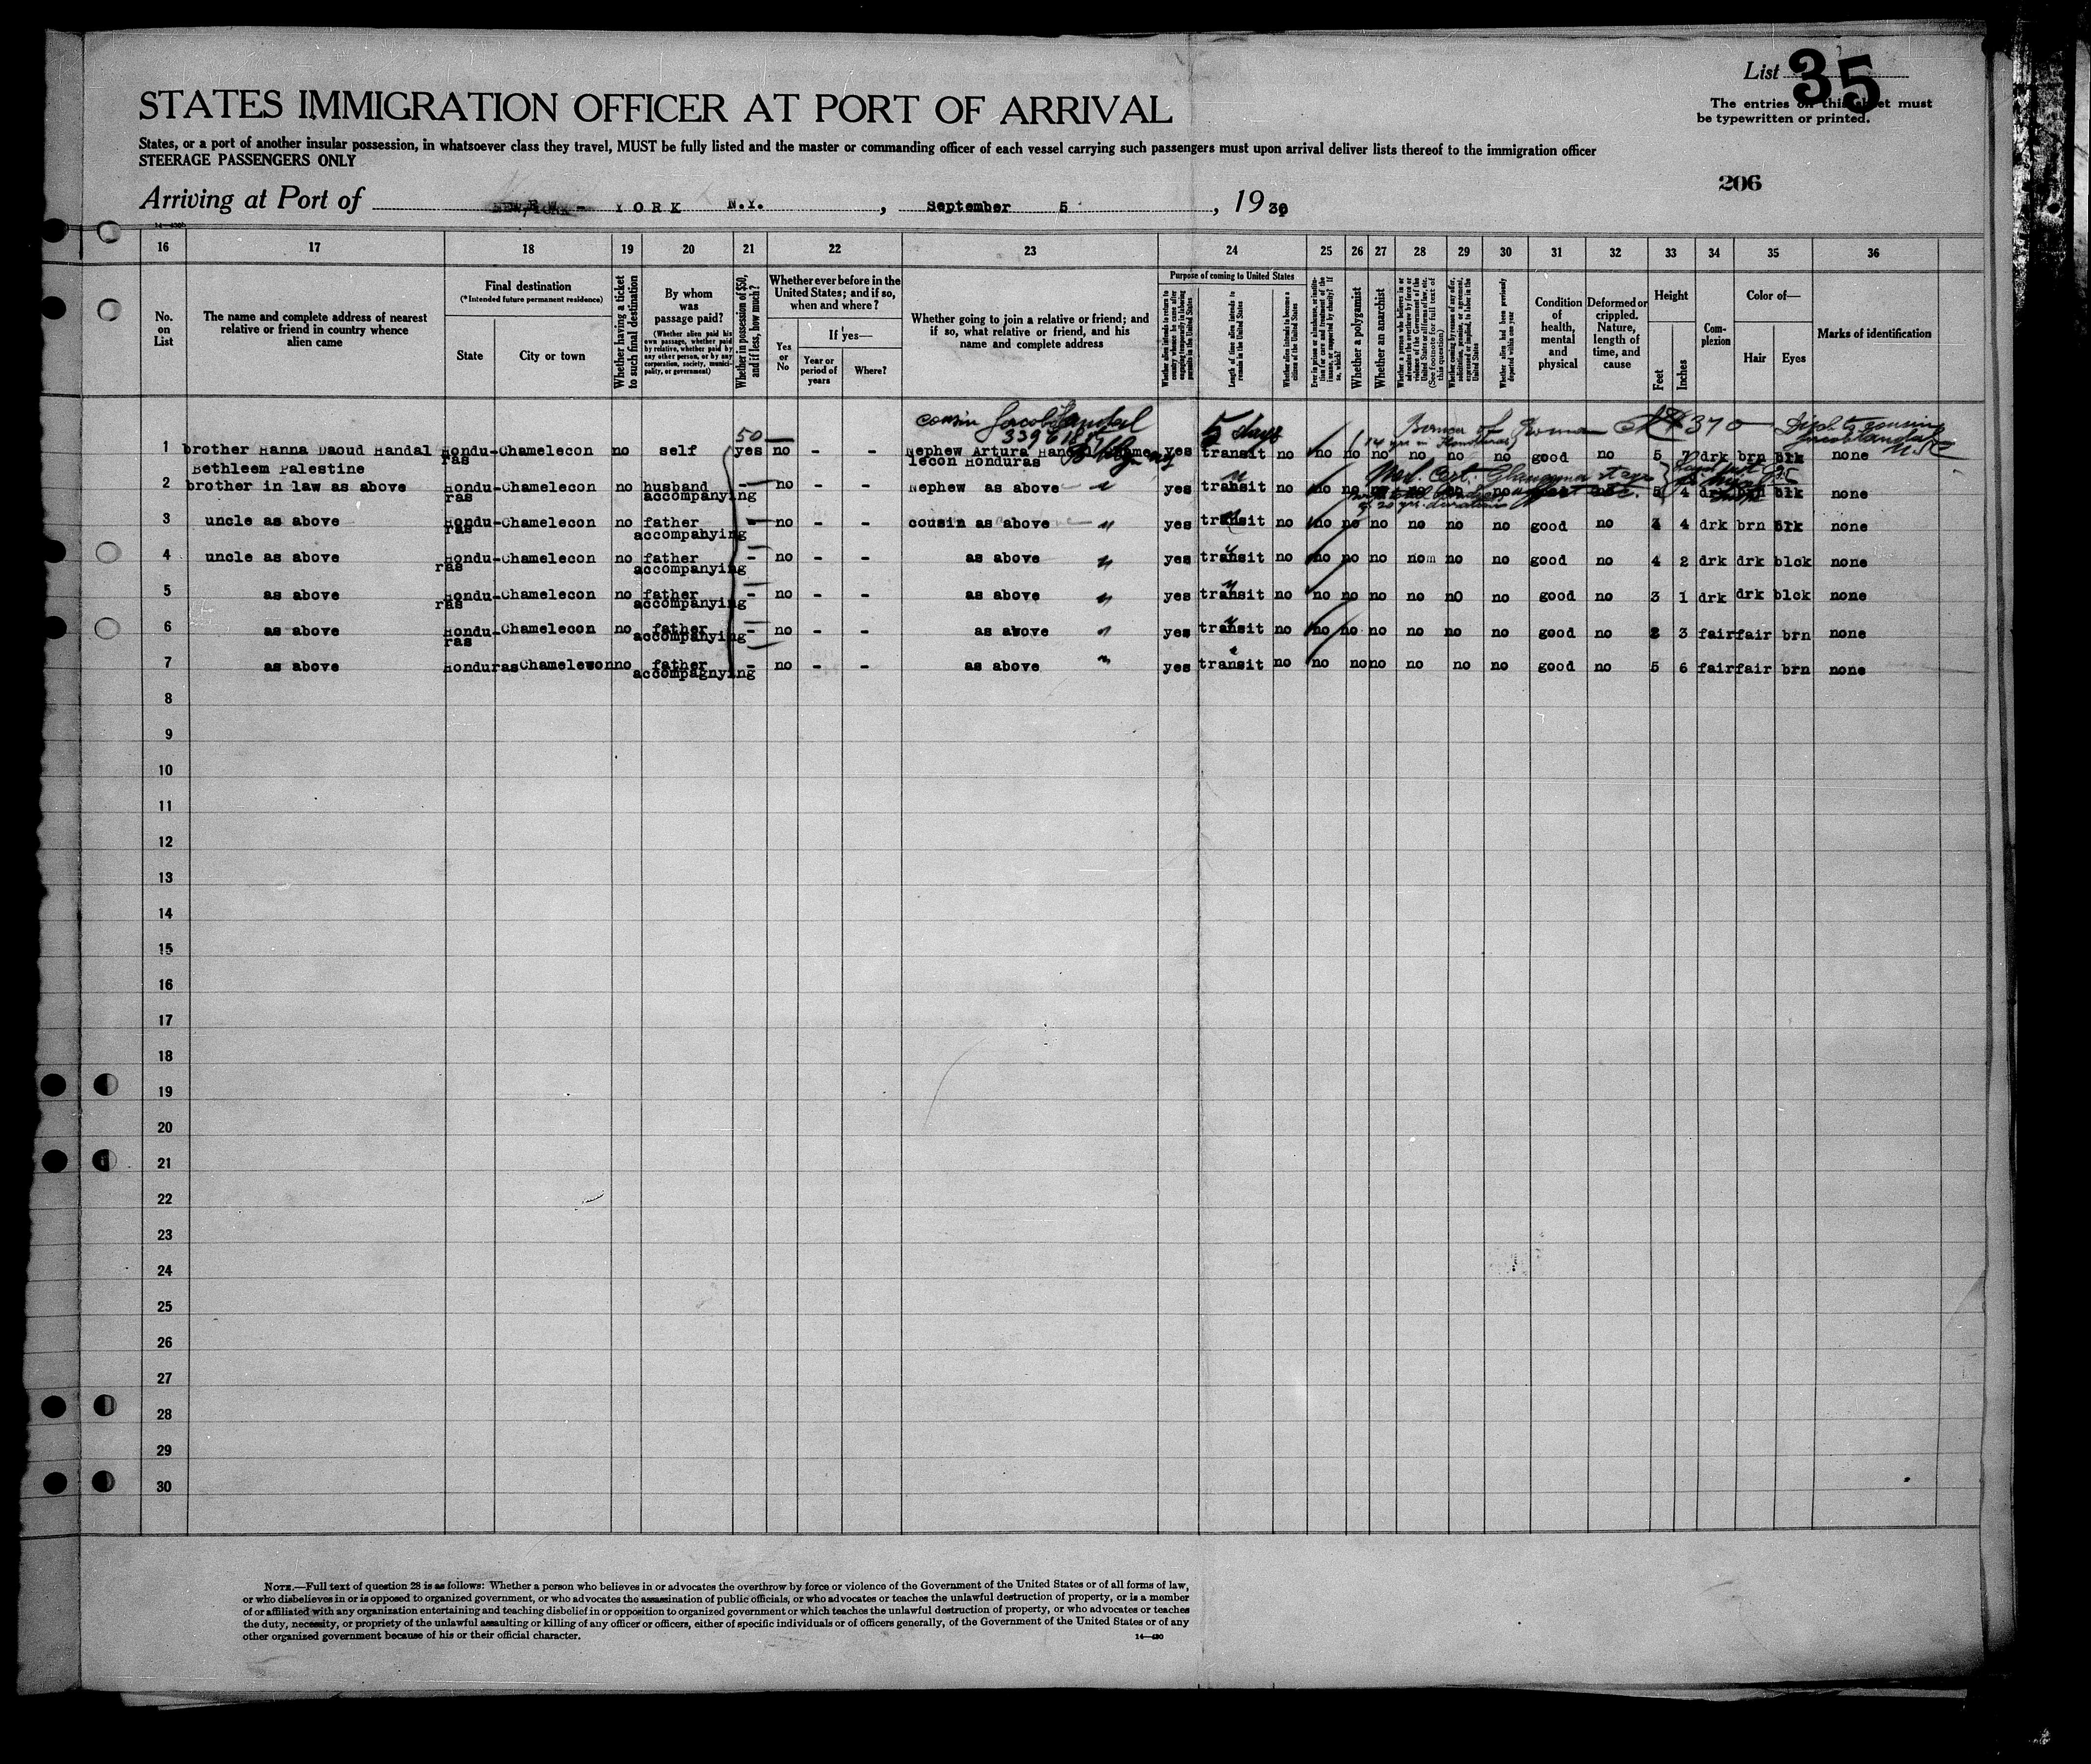 List 35
The entries on this sheet must
be typewritten or printed.
STATES IMMIGRATION OFFICER AT PORT OF ARRIVAL
States, or a port of another insular possession, in whatsoever class they travel, MUST be fully listed and the master or commanding officer of each vessel carrying such passengers must upon arrival deliver lists thereof to the immigration officer
STEERAGE PASSENGERS ONLY
206
Arriving at Port of YORK N.Y. , September 5 , 19 30
16 17 18 19 20 21 22 23 24 25 26 27 28 29 30 31 32 33 34 35 36
No. on List
The name and complete address of nearest relative or friend in country whence alien came
Final destination
(*Intended future permanent residence)
State
City or town
Whether having a ticket to such final destination
By whom was passage paid?
(Whether alien paid his own passage, whether paid by relative, whether paid by any other person, or by any corporation, society, municipality, or government)
Whether in possession of $50, and if less, how much?
Whether ever before in the United States; and if so, when and where?
Yes or No
If yes—
Year or period of years
Where?
Whether going to join a relative or friend; and if so, what relative or friend, and his name and complete address
Purpose of coming to United States
Whether alien intends to return to country whence he came after engaging temporarily in laboring pursuits in the United States
Length of time alien intends to remain in the United States
Whether alien intends to become a citizen of the United States
Ever in prison or almshouse, or institution for care and treatment of the insane, or supported by charity? If so, which?
Whether a polygamist
Whether an anarchist
Whether a person who believes in or advocates the overthrow by force or violence of the Government of the United States or all forms of law, etc. (See footnote for full text of this question.)
Whether coming by reason of any offer, solicitation, promise, or agreement, expressed or implied, to labor in the United States
Whether alien had been previously deported within one year
Condition of health, mental and physical
Deformed or crippled. Nature, length of time, and cause
Height
Feet
Inches
Complexion
Color of—
Hair
Eyes
Marks of identification
cousin Jacob Handal
50 — 5 days 370
1 brother Hanna Daoud Handal Hondu- Chamelecon no self yes no - - Nephew Artura Handal yes transit no no no no no no no good no 5 7 drk brn blk none
Bethleem Palestine ras lecon Honduras
2 brother in law as above Hondu- Chamelecon no husband - no - - Nephew as above " yes transit no no no 5 4 blk none
ras accompanying
3 uncle as above Hondu- Chamelecon no father - no - - cousin as above " yes transit no no no no no no no good no 4 drk brn blk none
ras accompanying
4 uncle as above Hondu- Chamelecon no father - no - - as above " yes transit no no no no no no no good no 4 2 drk drk blck none
ras accompanying
5 as above Hondu- Chamelecon no father - no - - as above " yes transit no no no no no no no good no 3 1 drk drk blck none
ras accompanying
6 as above Hondu- Chamelecon no father - no - - as above " yes transit no no no no no no no good no 3 fair fair brn none
ras accompanying
7 as above Honduras Chamelewon no father - no - - as above " yes transit no no no no no no no good no 5 6 fair fair brn none
accompagnying
8
9
10
11
12
13
14
15
16
17
18
19
20
21
22
23
24
25
26
27
28
29
30
NOTE.—Full text of question 28 is as follows: Whether a person who believes in or advocates the overthrow by force or violence of the Government of the United States or of all forms of law,
or who disbelieves in or is opposed to organized government, or who advocates the assassination of public officials, or who advocates or teaches the unlawful destruction of property, or is a member
of or affiliated with any organization entertaining and teaching disbelief in or opposition to organized government or which teaches the unlawful destruction of property, or who advocates or teaches
the duty, necessity, or propriety of the unlawful assaulting or killing of any officer or officers, either of specific individuals or of officers generally, of the Government of the United States or of any
other organized government because of his or their official character.
14—430